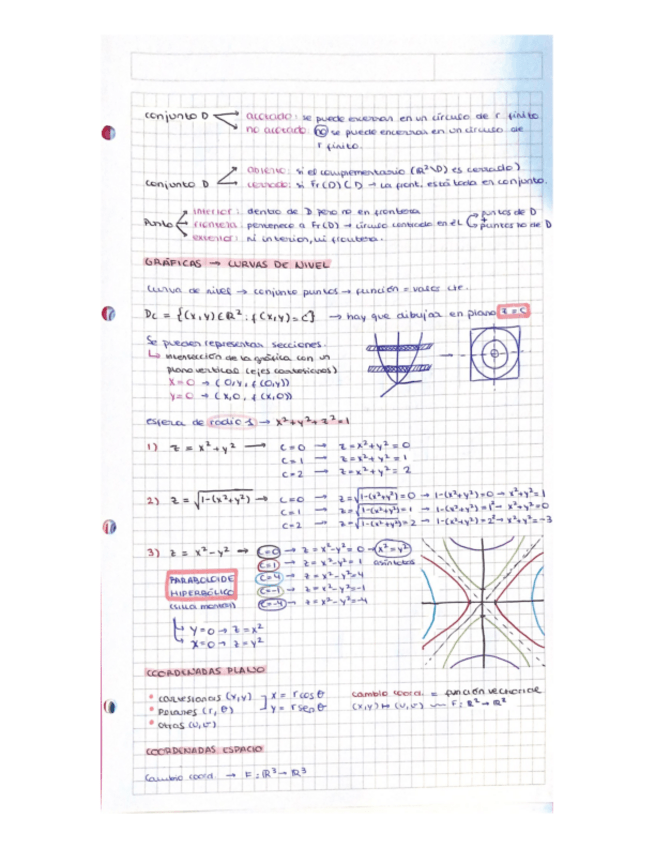 conjunto D → acotado: se puede encerrar en un círculo de r finito
no acotado: no se puede encerrar en un círculo de
r finito.
conjunto D → abierto: si el complementario (ℝ²\D) es cerrado)
cerrado: si Fr(D) ⊂ D → la front. está toda en conjunto.
Punto → interior: dentro de D pero no en frontera
frontera: pertenece a Fr(D) → círculo centrado en él → puntos de D
puntos no de D
exterior: ni interior, ni frontera.
GRÁFICAS → CURVAS DE NIVEL
Curva de nivel → conjunto puntos → función = valor cte.
Dc = {(x,y) ∈ ℝ² : f(x,y) = c} → hay que dibujar en plano z = c
Se pueden representar secciones.
↳ intersección de la gráfica con un
plano vertical (ejes cartesianos)
x=0 → (0,y, f(0,y))
y=0 → (x,0, f(x,0))
esfera de radio 1 → x²+y²+z²=1
1) z = x²+y² → c=0 → z=x²+y² = 0
c=1 → z=x²+y² = 1
c=2 → z=x²+y² = 2
2) z = √1-(x²+y²) → c=0 → z=√1-(x²+y²) = 0 → 1-(x²+y²)=0 → x²+y²=1
c=1 → z=√1-(x²+y²) = 1 → 1-(x²+y²)=1² → x²+y²=0
c=2 → z=√1-(x²+y²) = 2 → 1-(x²+y²)=2² → x²+y²=-3
3) z = x²-y² → c=0 → z = x²-y² = 0 → x²=y²
c=1 → z = x²-y² = 1 asíntotas
PARABOLOIDE c=4 → z = x²-y²=4
HIPERBÓLICO c=-1 → z = x²-y²=-1
(silla montar) c=-4 → z = x²-y²=-4
y=0 → z=x²
x=0 → z=y²
COORDENADAS PLANO
• cartesianas (x,y) ] x = r cos θ cambio coord. = función vectorial
• Polares (r, θ) ] y = r sen θ (x,y) ↦ (u,v) F: ℝ² → ℝ²
• otras (u,v)
COORDENADAS ESPACIO
Cambio coord. → F: ℝ³ → ℝ³